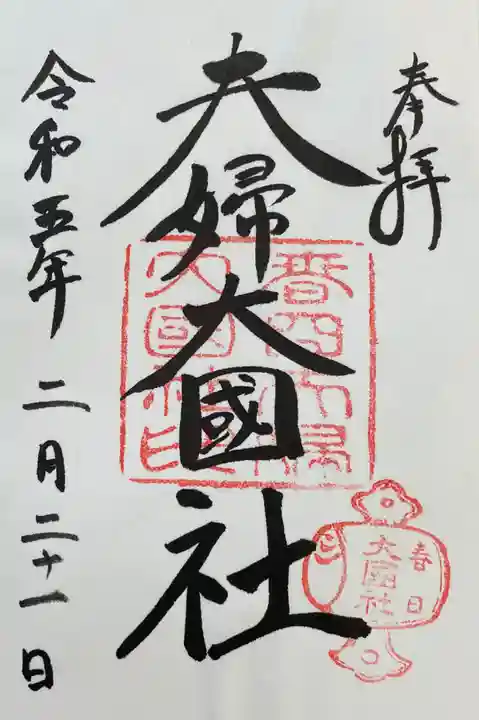 奉拝
夫婦大國社
令和五年 二月二十一日
春日
大國社